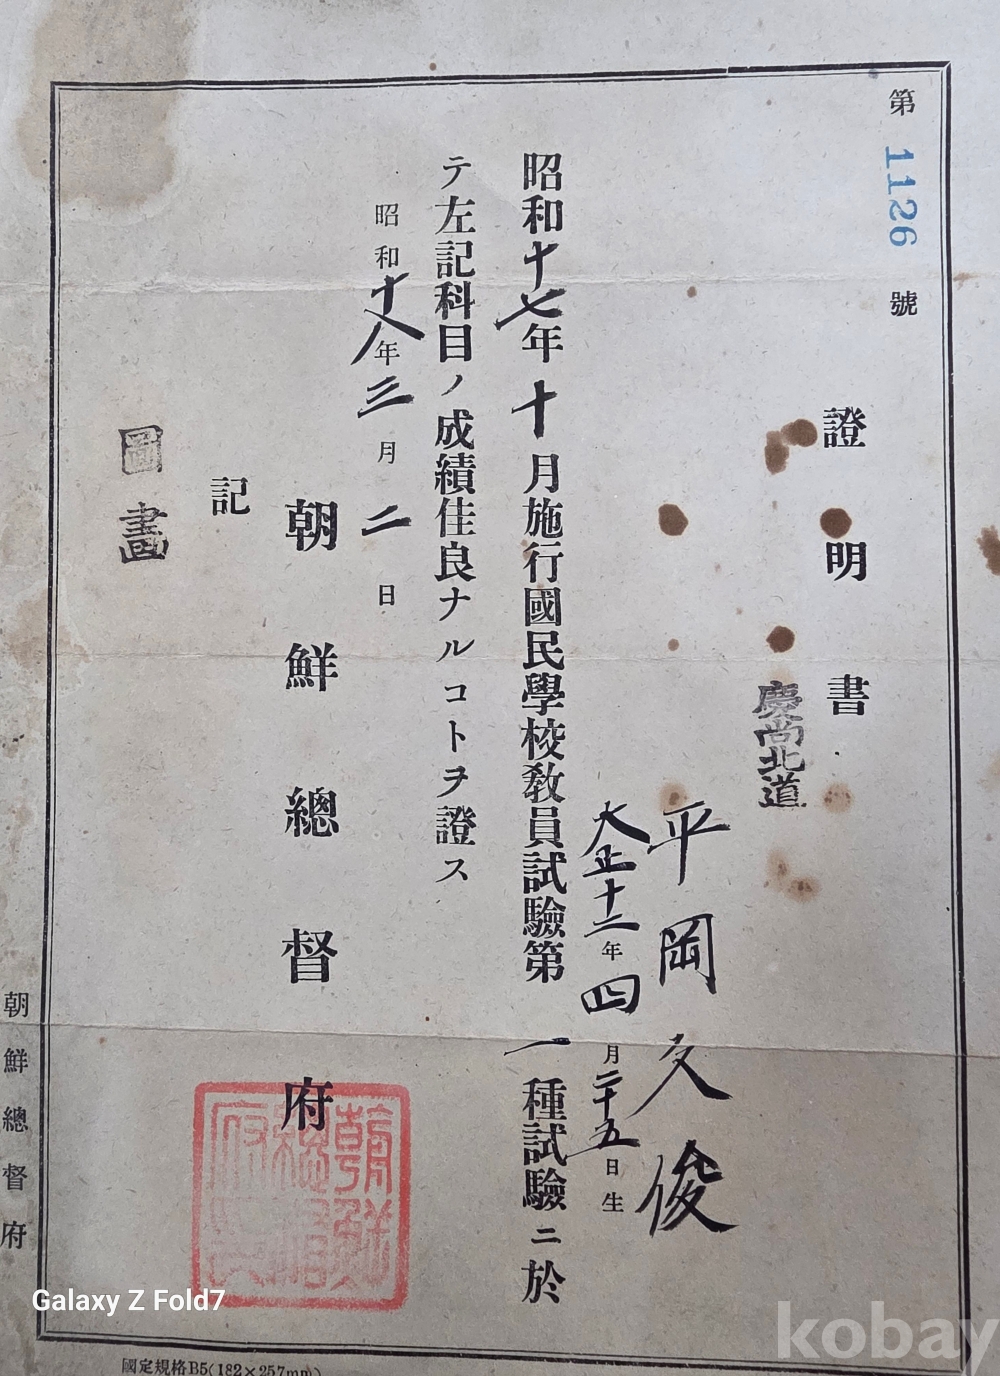 第 1126 號
證明書
慶尚北道
平岡文俊
大正十二年四月二十五日生
昭和十七年十月施行國民學校敎員試驗第一種試驗ニ於
テ左記科目ノ成績佳良ナルコトヲ證ス
昭和十八年三月二日
朝鮮總督府
記
圖畫
朝鮮總督府
國定規格B5(182×257mm)
Galaxy Z Fold7
kobay